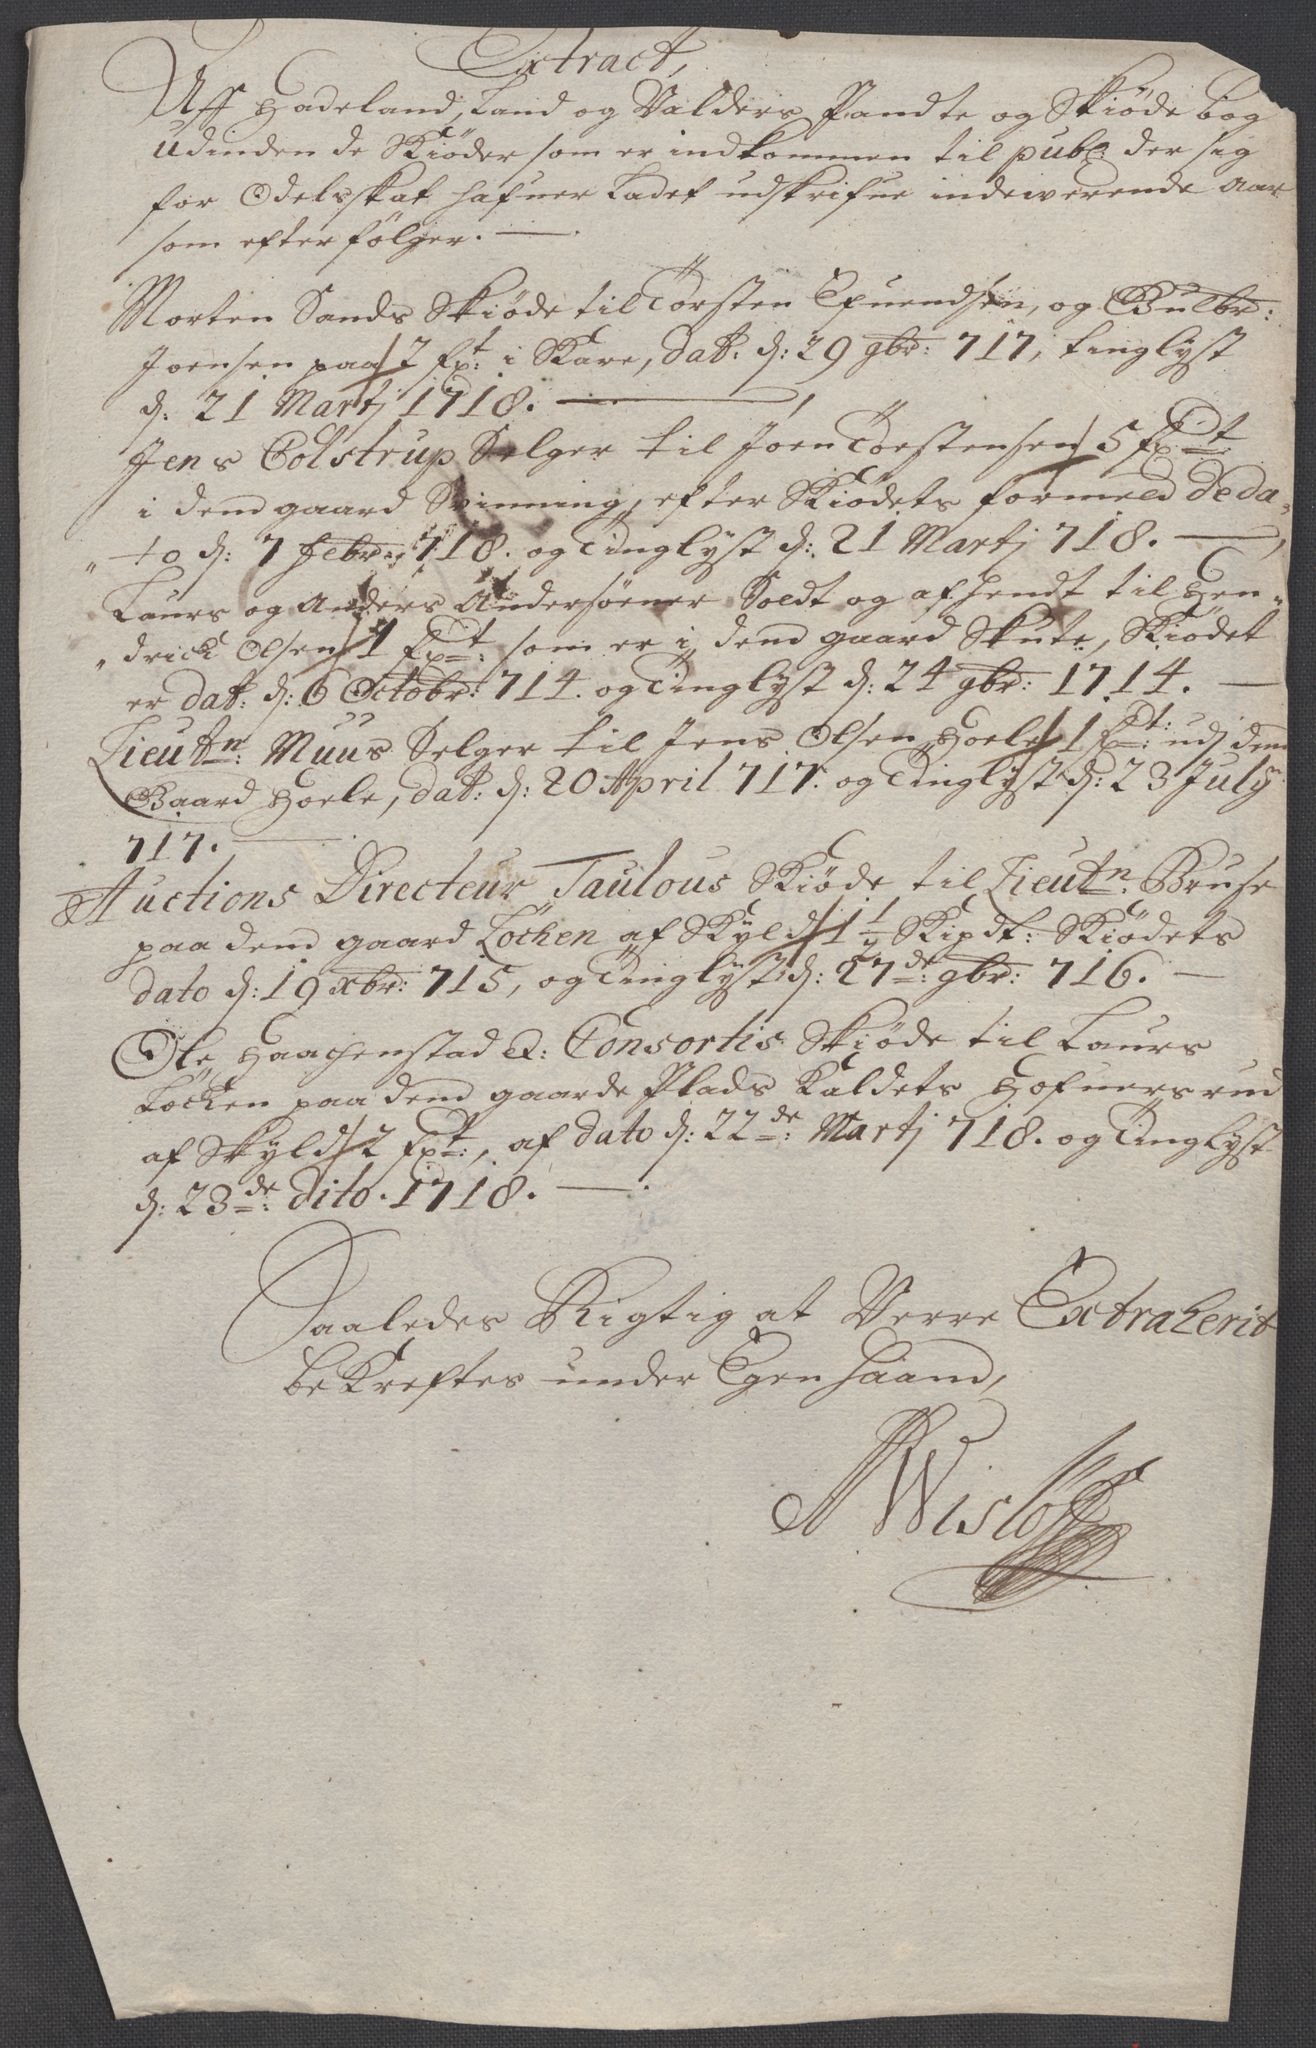 Extract,
Aff Hadeland, Land og Valders Pandte og Skiøde bog
udinden de Skiøder som er indkommen til publ: der sig
for Odelsskat hafuer ladet udskrifue indeværende Aar
som efter følger. —
Morten Sands Skiøde til Torsten Efuendsen, og Gulbr:
Joensen paa 2 fxt: i Skare, dat: d: 29 9br: 717, tinglyst
d. 21 Martj 1718. —
Jens Colstrup Selger til Joen Torstensen 5 fxt
i dend gaard Svinning, efter Skiødets formeld de da„
„to d: 7 febr: 718. og Tinglyst d: 21 Martj 718. —
Laurs og Anders Andersøener Soldt og afhendt til Hen„
„drick Olsen 1 fxt: som er i dend gaard Skute, Skiødet
er dat: d: 6 Octobr: 714. og Tinglyst d: 24 9br: 1714. —
Lieutn: Muus Selger til Jens Olsen Hoele 1 fxt: udj dend
Gaard Hoele, dat: d: 20 April 717. og Tinglyst d: 23 July
717. —
Auctions Directeur Taulous Skiøde til Lieutn: Bruse
paa dend gaard Löchen af Skyld 1½ Skipdt: Skiødets
dato d: 19 xbr: 715, og Tinglyst d: 27de: 9br: 716. —
Ole Haachenstad &: Consortis Skiøde til Laurs
Löchen paa dend gaarde Plads Kaldets Hofuersrud
af Skyld 2 fxt:, af dato d: 22de: Martj 718. og Tinglyst
d: 23de: dito. 1718. —
Saaledes Rigtig at Verre Extraherit
bekreftes under Egen haand,
A Wisløff